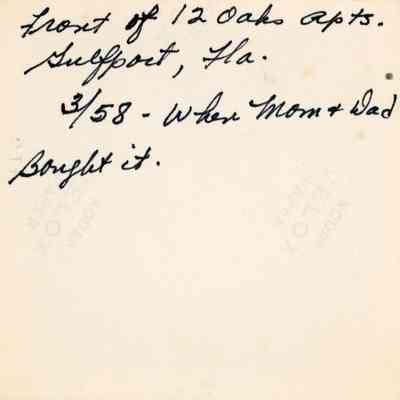 Front of 12 Oaks Apts.
Gulfport, Fla.
3/58 - When Mom & Dad
Bought it.
VELOX
KODAK
VELOX
PAPER
KODAK